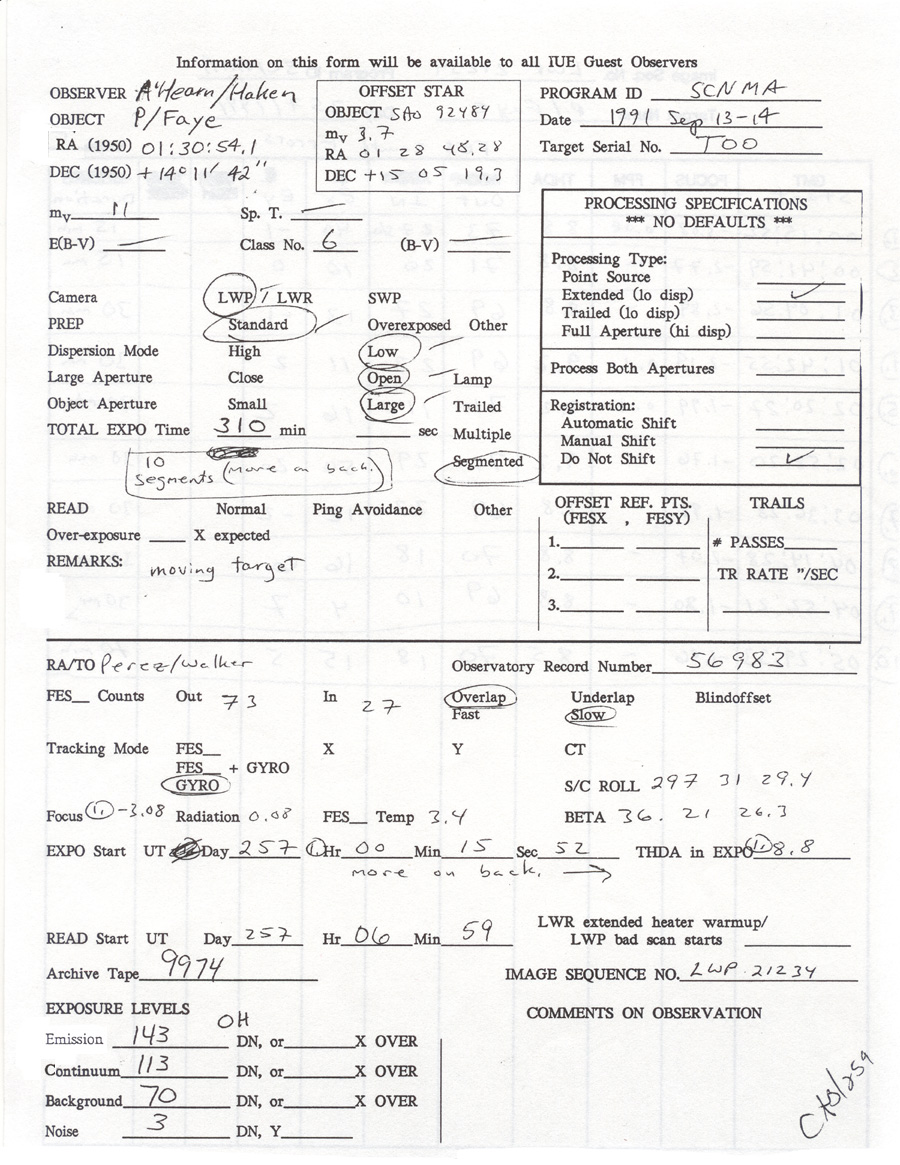 Information on this form will be available to all IUE Guest Observers
OBSERVER A'Hearn/Haken
OBJECT P/Faye
RA (1950) 01:30:54.1
DEC (1950) +14° 11' 42"
OFFSET STAR
OBJECT SAO 92484
mv 3.7
RA 01 28 48.28
DEC +15 05 19.3
PROGRAM ID SCNMA
Date 1991 Sep 13-14
Target Serial No. TOO
mv 11 Sp. T.
E(B-V) Class No. 6 (B-V)
PROCESSING SPECIFICATIONS
*** NO DEFAULTS ***
Processing Type:
Point Source
Extended (lo disp) ✓
Trailed (lo disp)
Full Aperture (hi disp)
Process Both Apertures
Registration:
Automatic Shift
Manual Shift
Do Not Shift ✓
Camera LWP / LWR SWP
PREP Standard Overexposed Other
Dispersion Mode High Low
Large Aperture Close Open Lamp
Object Aperture Small Large Trailed
TOTAL EXPO Time 310 min sec Multiple
10 segments (more on back.) Segmented
READ Normal Ping Avoidance Other
Over-exposure X expected
REMARKS: moving target
OFFSET REF. PTS.
(FESX , FESY)
1.
2.
3.
TRAILS
# PASSES
TR RATE "/SEC
RA/TO Perez/Walker Observatory Record Number 56983
FES Counts Out 73 In 27 Overlap Underlap Blindoffset
Fast Slow
Tracking Mode FES X Y CT
FES + GYRO
GYRO
S/C ROLL 297 31 29.4
Focus 1, -3.08 Radiation 0.08 FES Temp 3.4 BETA 36. 21 26.3
EXPO Start UT Day 257 1, Hr 00 Min 15 Sec 52 THDA in EXPO 1, 8.8
more on back. →
READ Start UT Day 257 Hr 06 Min 59
LWR extended heater warmup/
LWP bad scan starts
Archive Tape 9974 IMAGE SEQUENCE NO. LWP 21234
EXPOSURE LEVELS
OH
Emission 143 DN, or X OVER
Continuum 113 DN, or X OVER
Background 70 DN, or X OVER
Noise 3 DN, Y
COMMENTS ON OBSERVATION